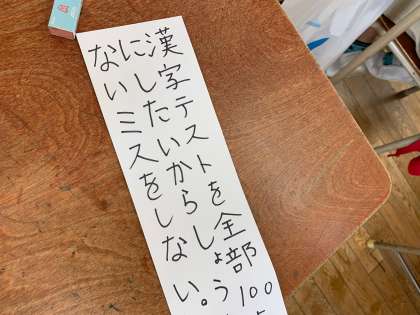 漢字テストを全部100
にしたいからしょう
ないミスをしない。